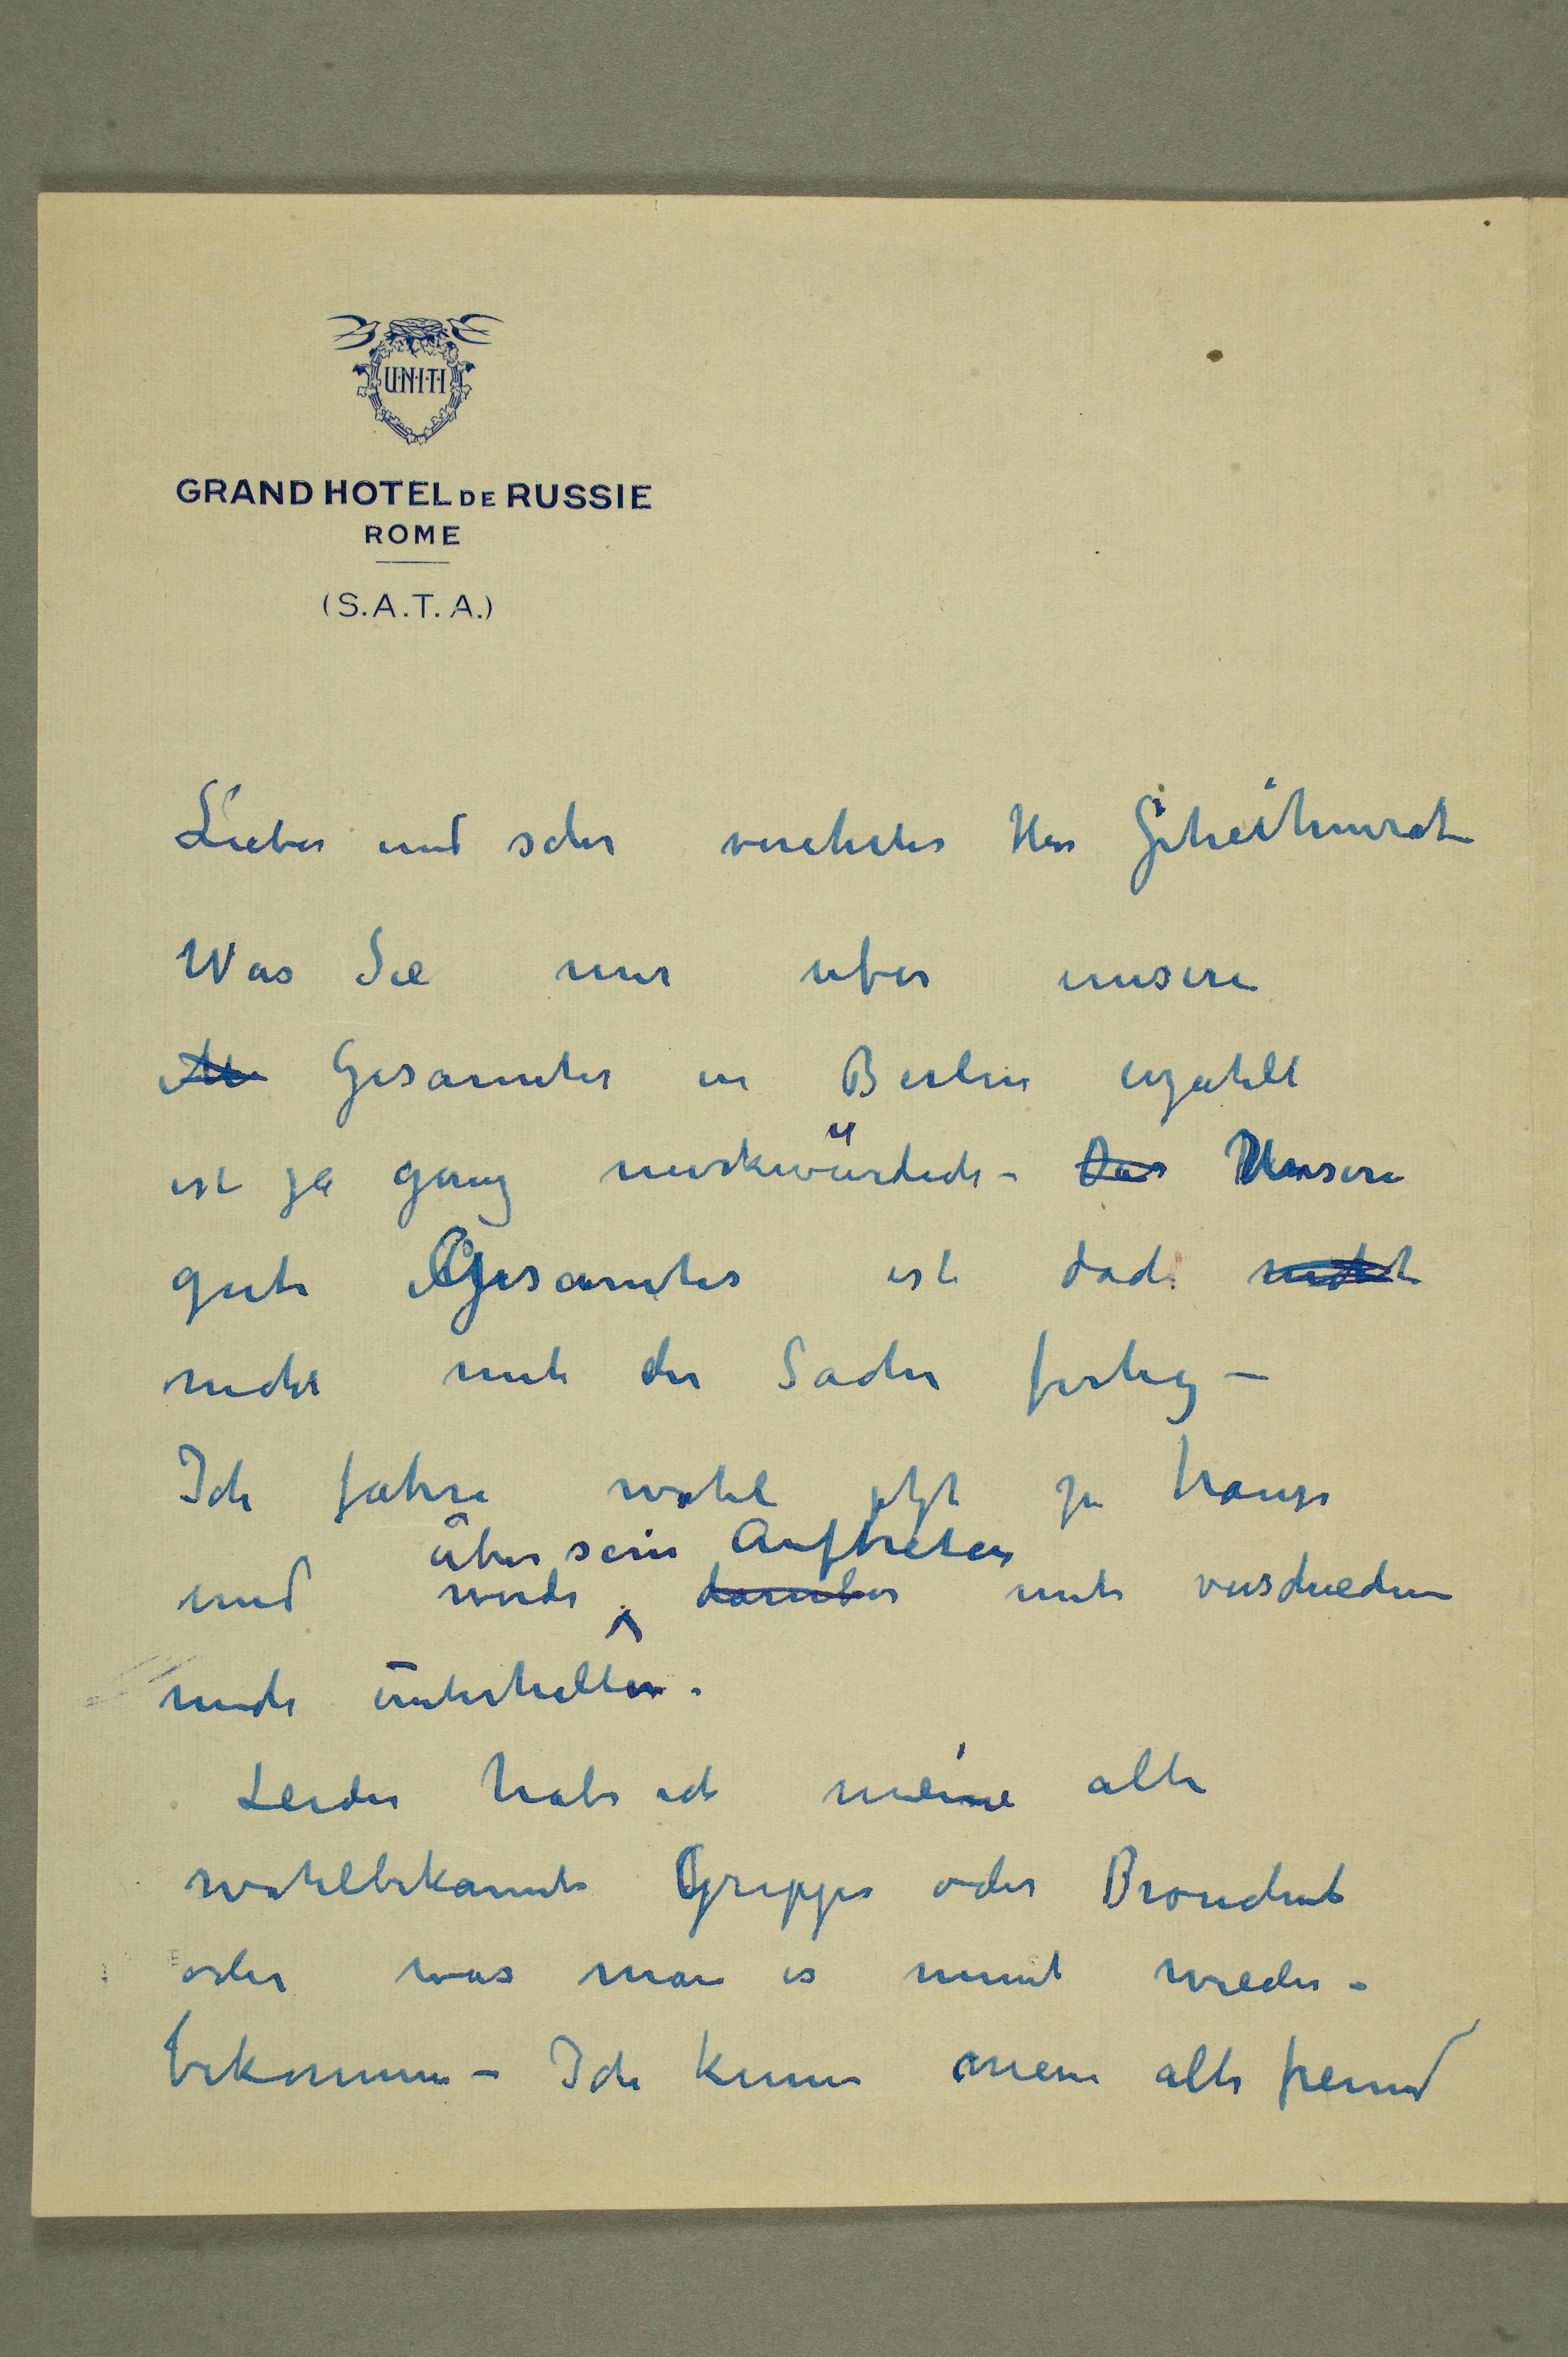 UNITI
GRAND HOTEL DE RUSSIE
ROME
(S.A.T.A.)
Lieber und sehr verehrter Herr Geheimrat
Was Sie mir uber unsere
Gesannter in Berlin erzahlt
ist ja ganz merkwürdich – Das Unsere
gute Gesannter ist doch nicht
nicht mit der Sache fertig –
Ich fahre wohl jetzt zu hause
über sein Auftreten
und werde darüber mit verschieden
mich unterhalten.
Leider habe ich meine alte
wohlbekannte Grippe oder Bronchit
oder was man es nennt wieder –
bekommen – Ich kenne mein alte freund